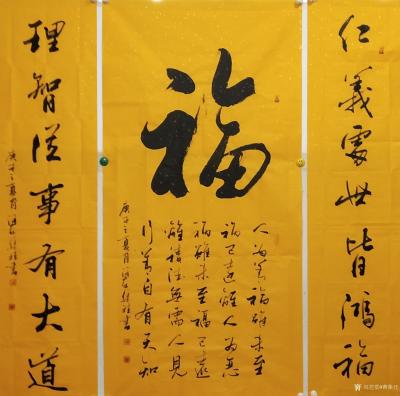 仁義處世皆鴻福
福
人为善福雖未至
禍已遠離人为惡
禍雖未至福已遠
離積德無需人見
行善自有天知
庚子之夏月
理智從事有大道
庚子之夏月